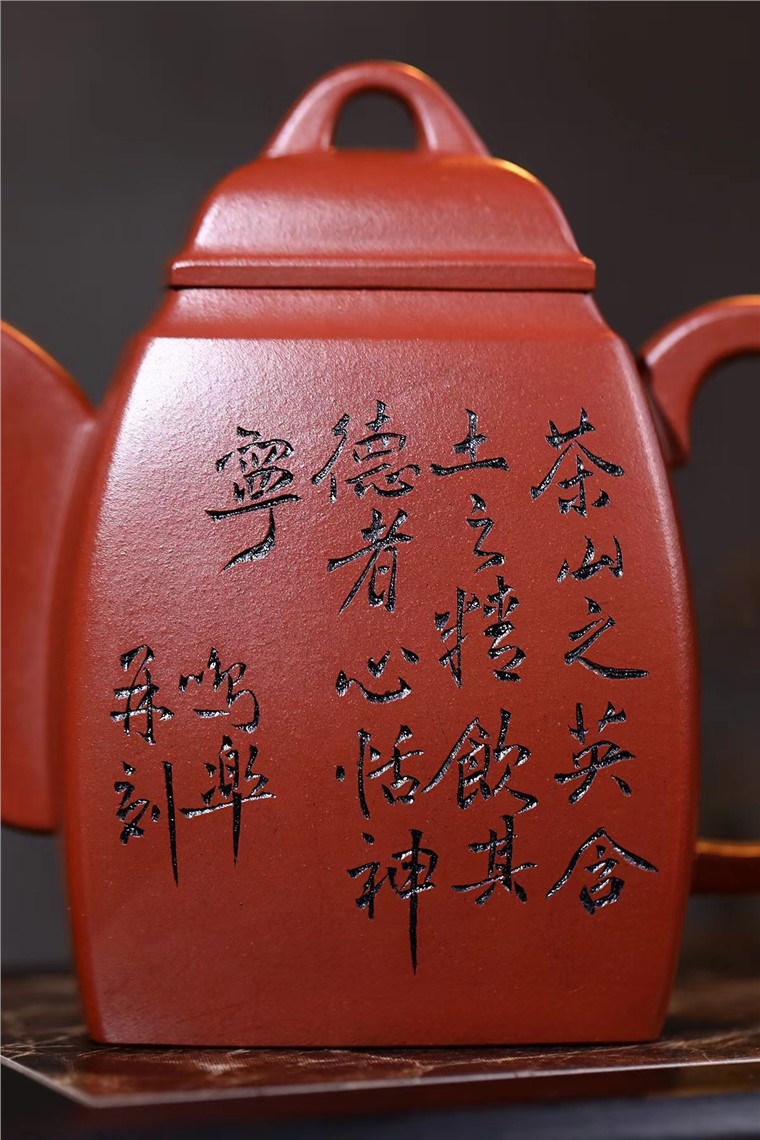 茶山之英含
土之精飲其
德者心恬神
寧
鳴樂
并刻